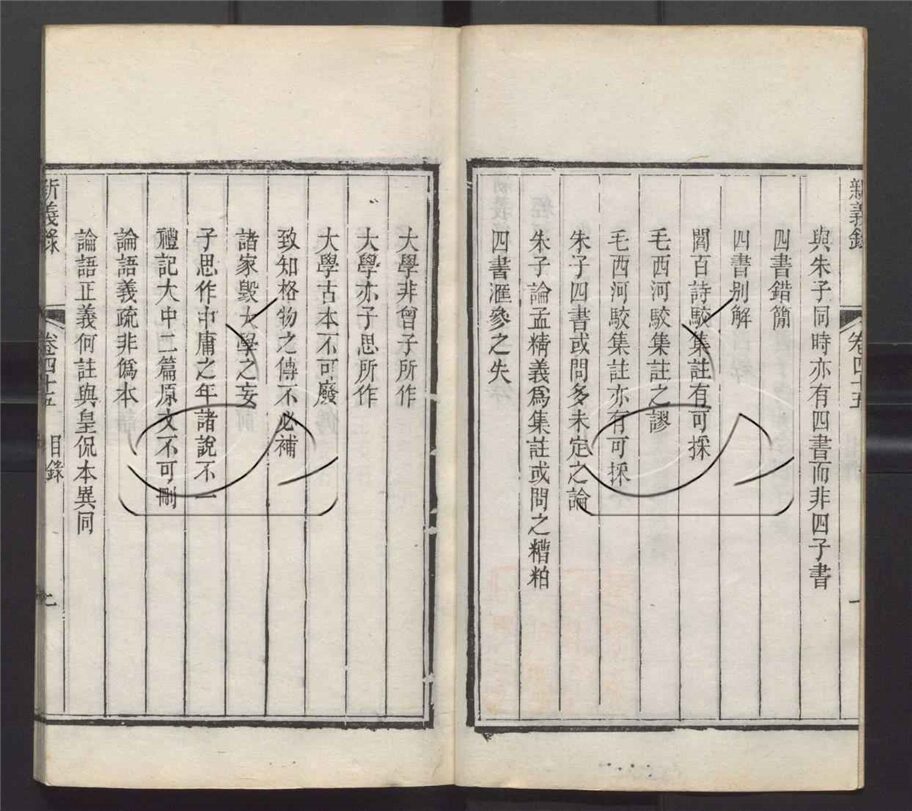 新義錄
卷四十五
與朱子同時亦有四書而非四子書
四書錯簡
四書別解
閻百詩駮集註有可採
毛西河駮集註之謬
毛西河駮集註亦有可採
朱子四書或問多未定之論
朱子論孟精義爲集註或問之糟粕
四書滙參之失
大學非曾子所作
大學亦子思所作
大學古本不可廢
致知格物之傳不必補
諸家毀大學之妄
子思作中庸之年諸說不一
禮記大中二篇原文不可刪
論語義疏非僞本
論語正義何註與皇侃本異同
新義錄
卷四十五
目錄